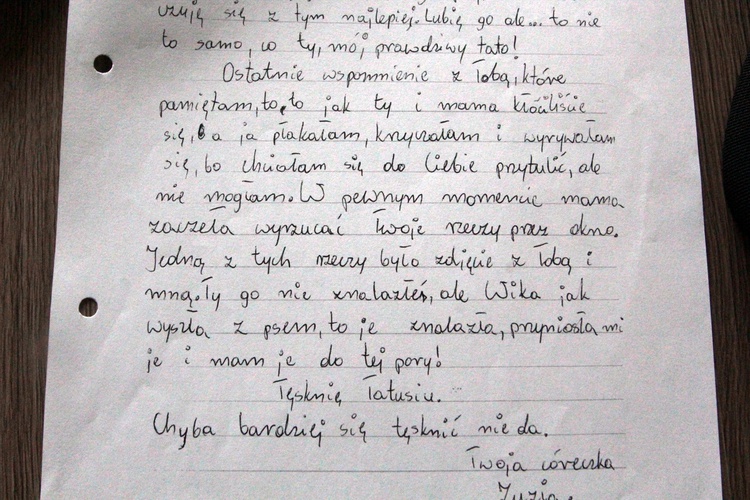 czują się z tym najlepiej. Lubię go ale... to nie
to samo, co ty, mój prawdziwy tato!
Ostatnie wspomnienie z Tobą, które
pamiętam, to, to jak ty i mama kłóciliście
się, a ja płakałam, krzyczałam i wyrywałam
się, bo chciałam się do Ciebie przytulić, ale
nie mogłam. W pewnym momencie mama
zaczęła wyrzucać Twoje rzeczy przez okno.
Jedną z tych rzeczy było zdjęcie z Tobą i
mną. Ty go nie znalazłeś, ale Wika jak
wyszła z psem, to je znalazła, przyniosła mi
je i mam je do tej pory!
Tęsknię Tatusiu.
Chyba bardziej się tęsknić nie da.
Twoja córeczka
Zuzia.